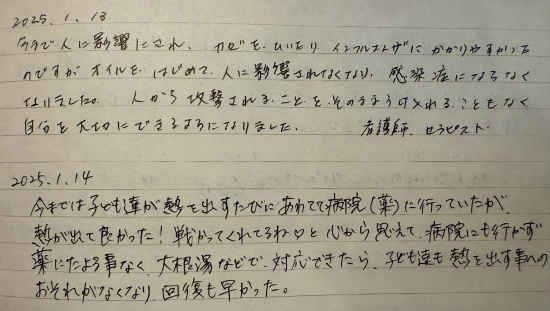 2025.1.13
今まで人に影響にされ、カゼをひいたり インフルエンザにかかりやすかった
のですが オイルを はじめて、人に影響されなくなり、感染症にならなく
なりました。 人から攻撃されることをそのままうけ入れることもなく
自分を大切にできるようになりました。 看護師、セラピスト
2025.1.14
今までは子ども達が熱を出すたびにあわてて病院(薬)に行っていたが、
熱が出て良かった!戦かってくれてるね♡と心から思えて、病院にも行かず
薬にたよる事なく、大根湯などで、対応できたら、子ども達も熱を出す事への
おそれがなくなり、回復も早かった。